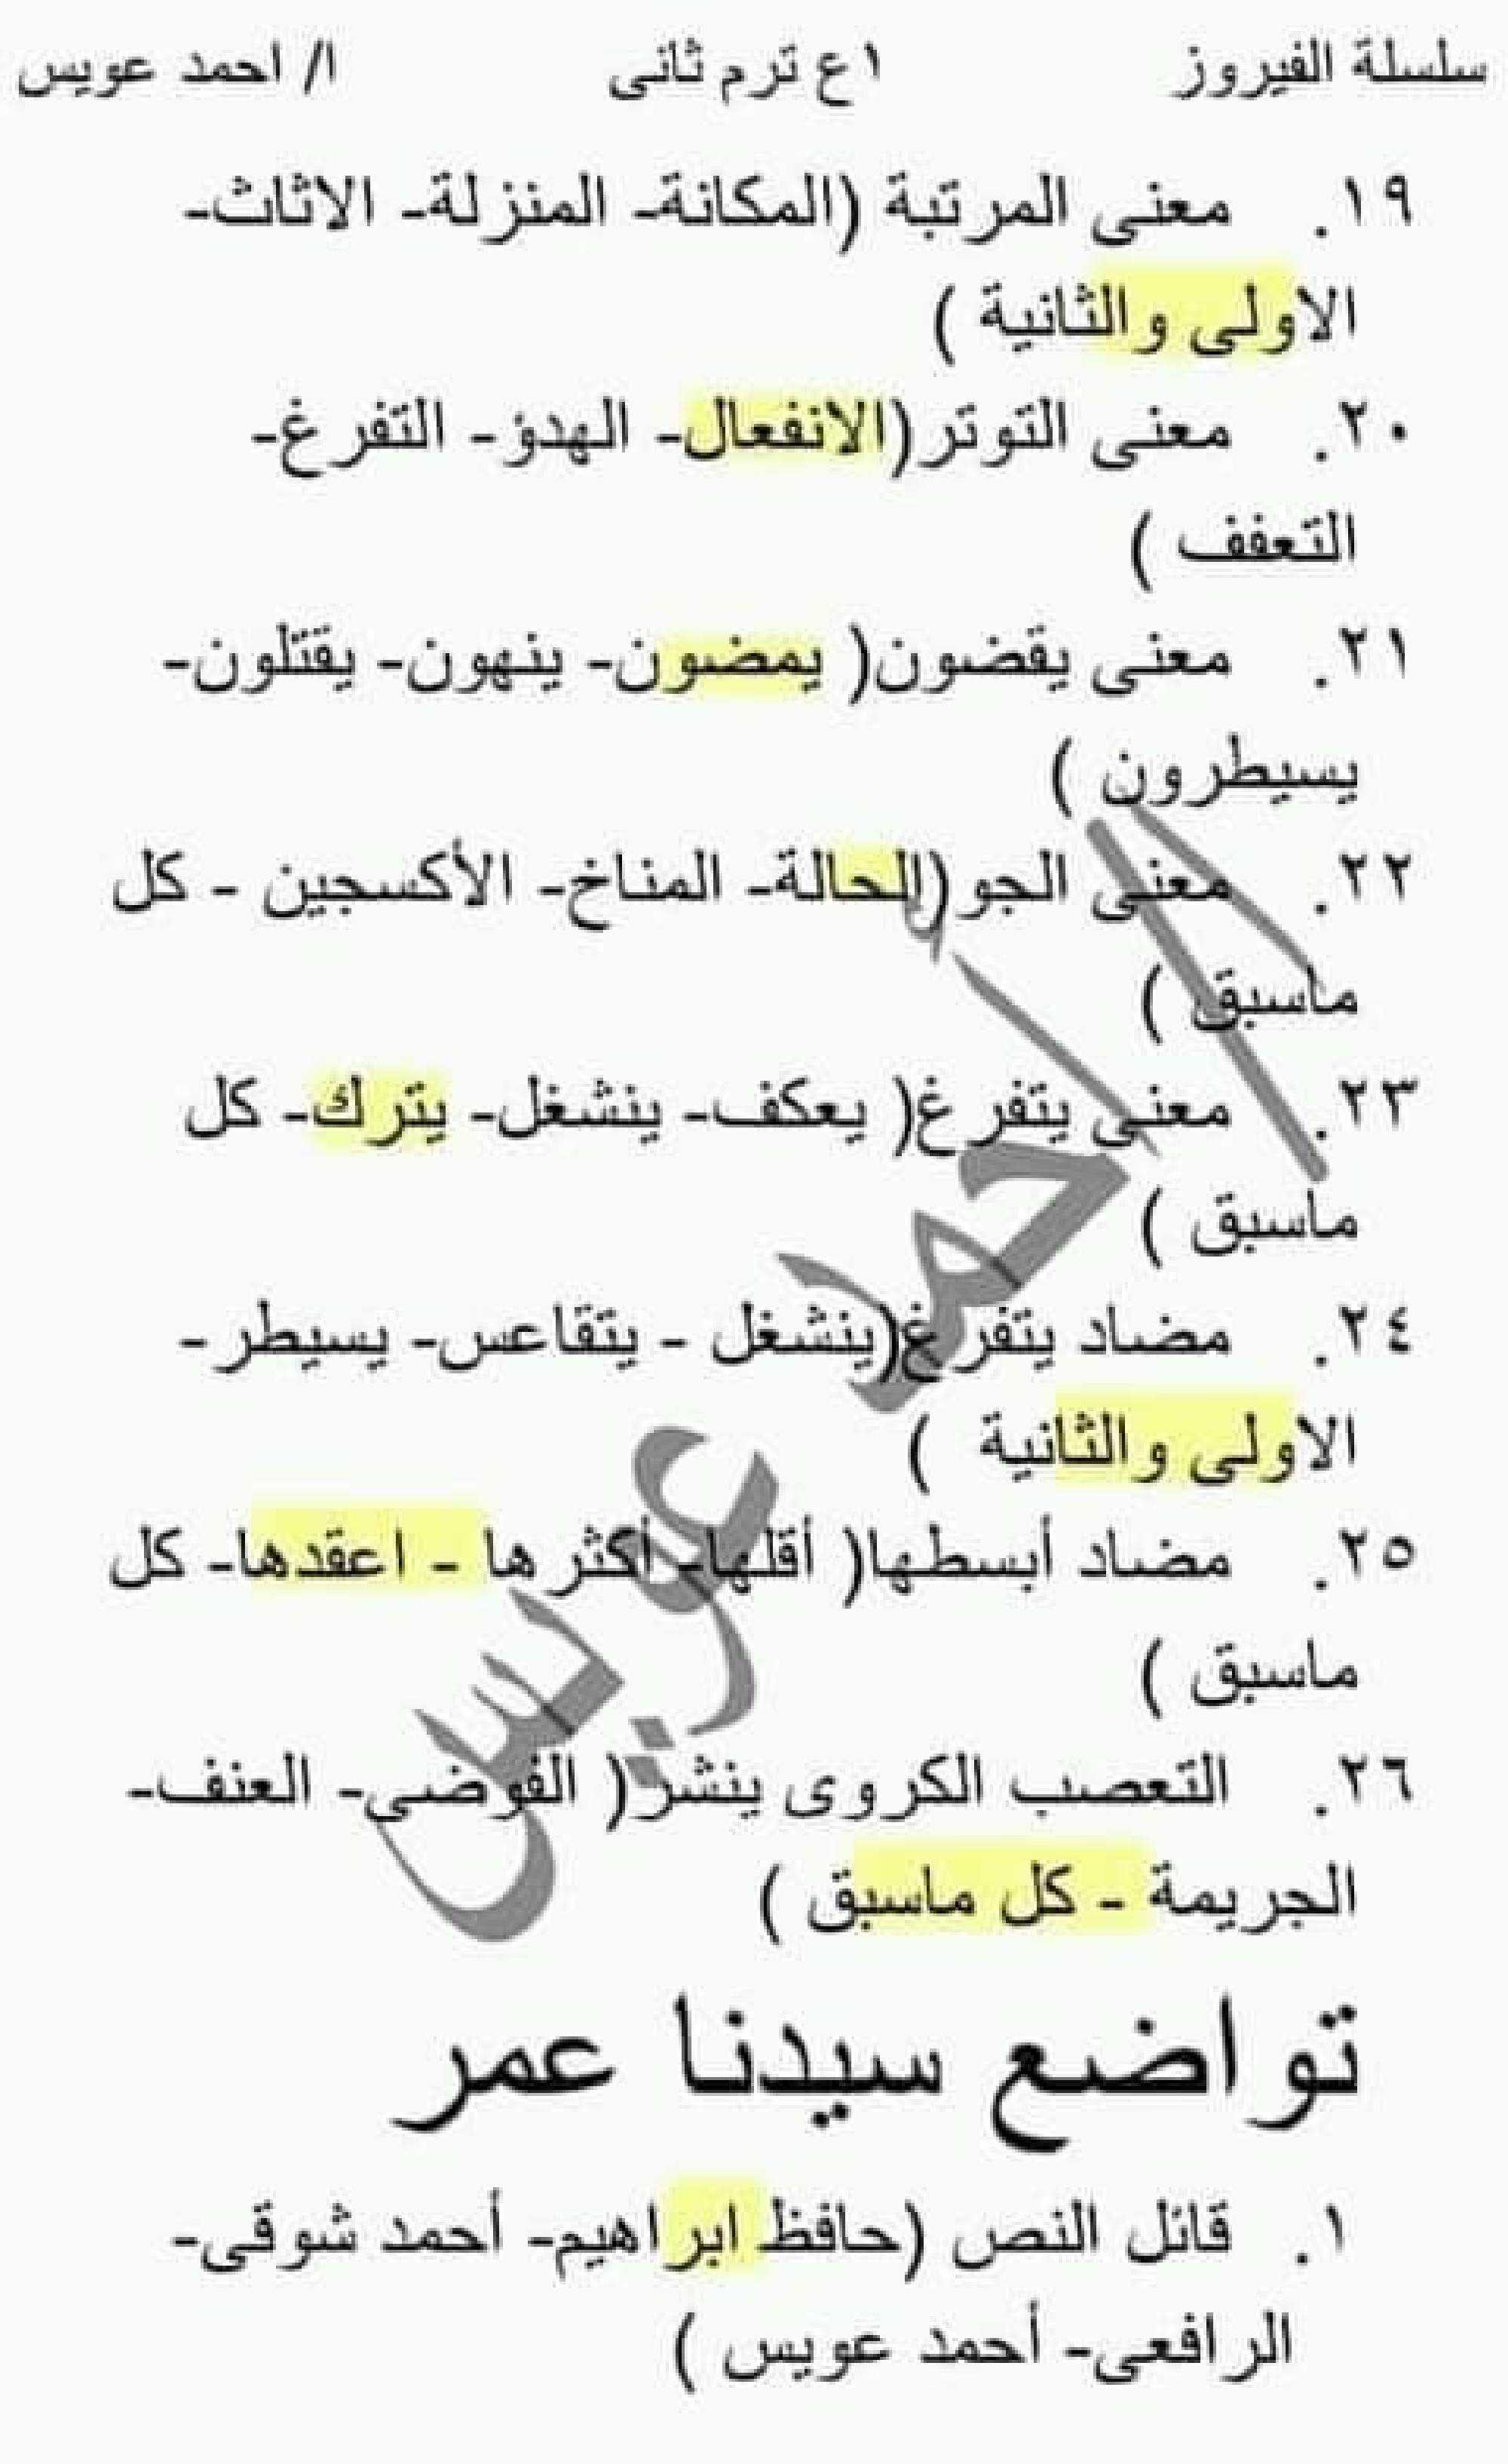 سلسلة الفيروز ١ع ترم ثانى ا/ احمد عويس
١٩. معنى المرتبة (المكانة- المنزلة- الاثاث-
الاولى والثانية )
٢٠. معنى التوتر(الانفعال- الهدؤ- التفرغ-
التعفف )
٢١. معنى يقضون( يمضون- ينهون- يقتلون-
يسيطرون )
٢٢. معنى الجو(الحالة- المناخ- الأكسجين - كل
ماسبق )
٢٣. معنى يتفرغ( يعكف- ينشغل- يترك- كل
ماسبق )
٢٤. مضاد يتفرغ(ينشغل - يتقاعس- يسيطر-
الاولى والثانية )
٢٥. مضاد أبسطها( أقلها- أكثرها - اعقدها- كل
ماسبق )
٢٦. التعصب الكروى ينشر( الفوضى- العنف-
الجريمة - كل ماسبق )
تواضع سيدنا عمر
١. قائل النص (حافظ ابراهيم- أحمد شوقى-
الرافعى- أحمد عويس )
ا/ احمد عويس